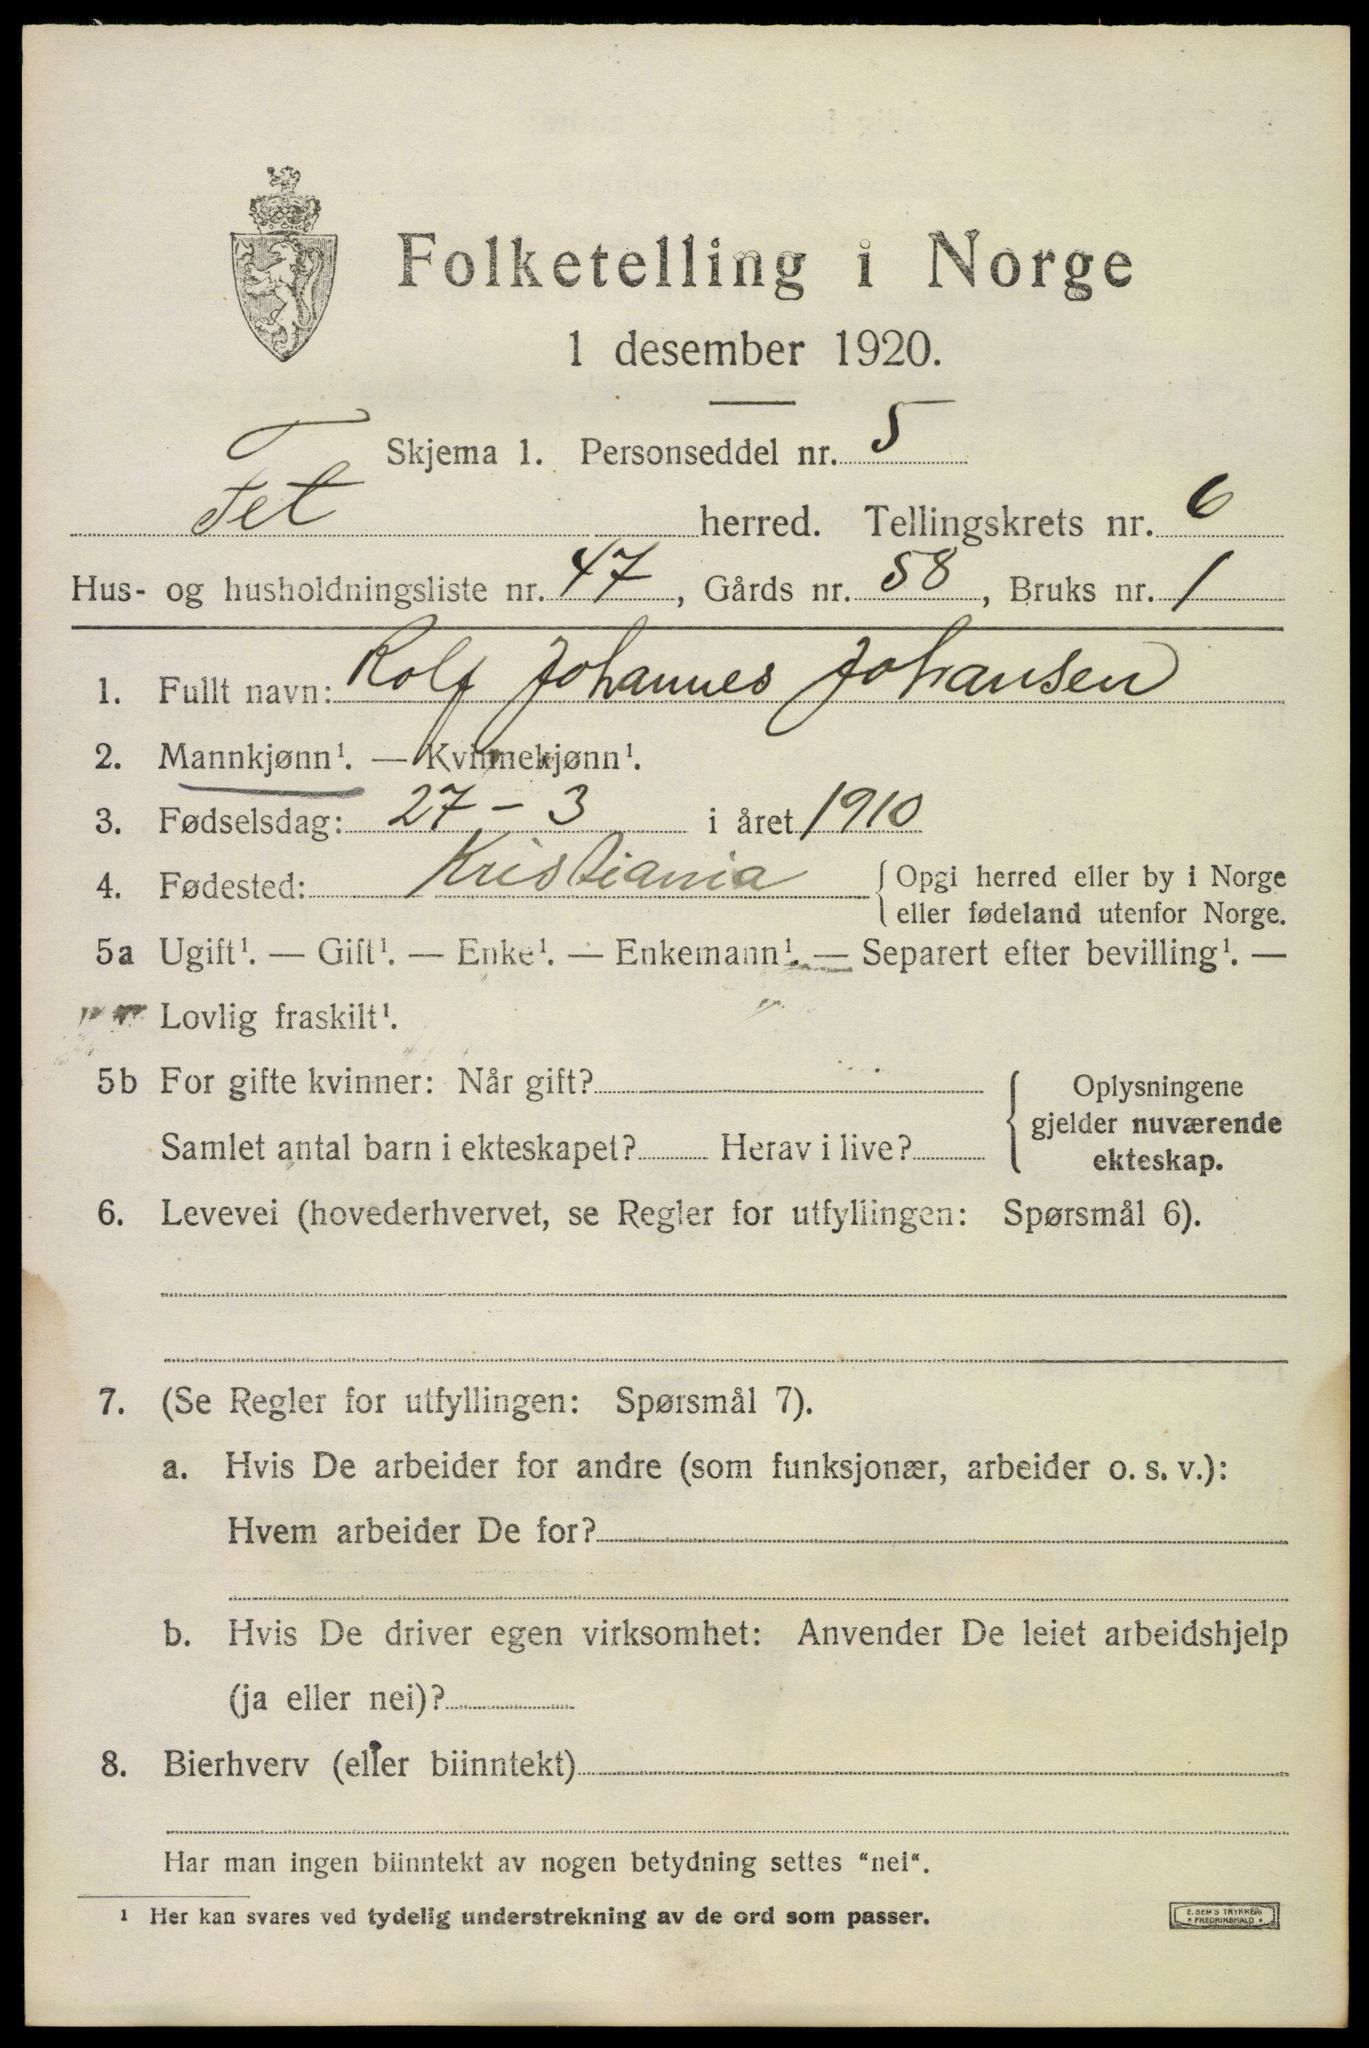 Folketelling i Norge
1 desember 1920.
Skjema 1. Personseddel nr. 5
Fet herred. Tellingskrets nr. 6
Hus- og husholdningsliste nr. 47, Gårds nr. 58, Bruks nr. 1
1. Fullt navn: Rolf Johannes Johansen
2. Mannkjønn¹. — Kvinnekjønn¹.
3. Fødselsdag: 27 - 3 i året 1910
4. Fødested: Kristiania { Opgi herred eller by i Norge
eller fødeland utenfor Norge.
5a Ugift¹. — Gift¹. — Enke¹. — Enkemann¹. — Separert efter bevilling¹. —
Lovlig fraskilt¹.
5b For gifte kvinner: Når gift?
Samlet antal barn i ekteskapet? Herav i live?
{ Oplysningene
gjelder nuværende
ekteskap.
6. Levevei (hovederhvervet, se Regler for utfyllingen: Spørsmål 6).
7. (Se Regler for utfyllingen: Spørsmål 7).
a. Hvis De arbeider for andre (som funksjonær, arbeider o. s. v.):
Hvem arbeider De for?
b. Hvis De driver egen virksomhet: Anvender De leiet arbeidshjelp
(ja eller nei)?
8. Bierhverv (eller biinntekt)
Har man ingen biinntekt av nogen betydning settes "nei".
¹ Her kan svares ved tydelig understrekning av de ord som passer.
E. SEM'S TRYKKERI
• FREDRIKSHALD •